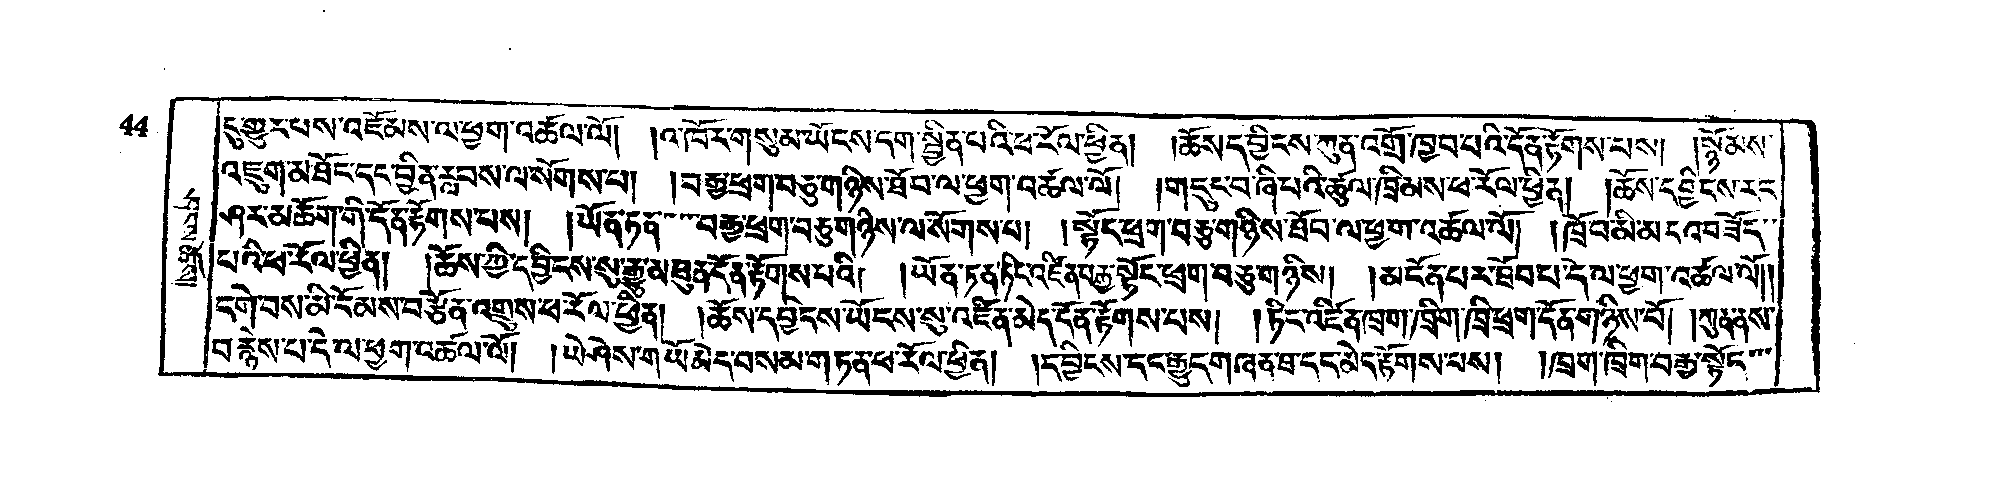 44
དུ་གྱུར་པས་འཛོམས་ལ་ཕྱག་འཚལ་ལོ། །འཁོར་གསུམ་ཡོངས་དག་སྦྱིན་པའི་ཕ་རོལ་ཕྱིན། །ཆོས་དབྱིངས་ཀུན་འགྲོ་ཁྱབ་པའི་དོན་རྟོགས་པས། །སྙོམས་
འཇུག་མཐོང་དང་བྱིན་རླབས་ལ་སོགས་པ། །བརྒྱ་ཕྲག་བཅུ་གཉིས་ཐོབ་ལ་ཕྱག་འཚལ་ལོ། །གདུང་བ་ཞི་པའི་ཚུལ་ཁྲིམས་ཕ་རོལ་ཕྱིན། །ཆོས་དབྱིངས་རང་
ཤར་མཆོག་གི་དོན་རྟོགས་པས། །ཡོན་ཏན་བརྒྱ་ཕྲག་བཅུ་གཉིས་ལ་སོགས་པ། །སྟོང་ཕྲག་བཅུ་གཉིས་ཐོབ་ལ་ཕྱག་འཚལ་ལོ། །ཁྲོ་བ་མི་མངའ་བཟོད་
པའི་ཕ་རོལ་ཕྱིན། །ཆོས་ཀྱི་དབྱིངས་སུ་རྒྱུ་མཐུན་དོན་རྟོགས་པའི། །ཡོན་ཏན་ཏིང་འཛིན་བརྒྱ་སྟོང་ཕྲག་བཅུ་གཉིས། །མངོན་པར་ཐོབ་པ་དེ་ལ་ཕྱག་འཚལ་ལོ།།
དགེ་བས་མི་ངོམས་བརྩོན་འགྲུས་ཕ་རོལ་ཕྱིན། །ཆོས་དབྱིངས་ཡོངས་སུ་འཛིན་མེད་དོན་རྟོགས་པས། །ཏིང་འཛིན་ཁྲག་ཁྲིག་ཁྲི་ཕྲག་དོན་གཉིས་པོ། །ཀུན་ནས་
བརྙེས་པ་དེ་ལ་ཕྱག་འཚལ་ལོ། །ཡེ་ཤེས་གཡོ་མེད་བསམ་གཏན་ཕ་རོལ་ཕྱིན། །དབྱིངས་དང་རྒྱུད་གཞན་ཐ་དང་མེད་རྟོགས་པས། །ཁྲག་ཁྲིག་བརྒྱ་སྟོང་